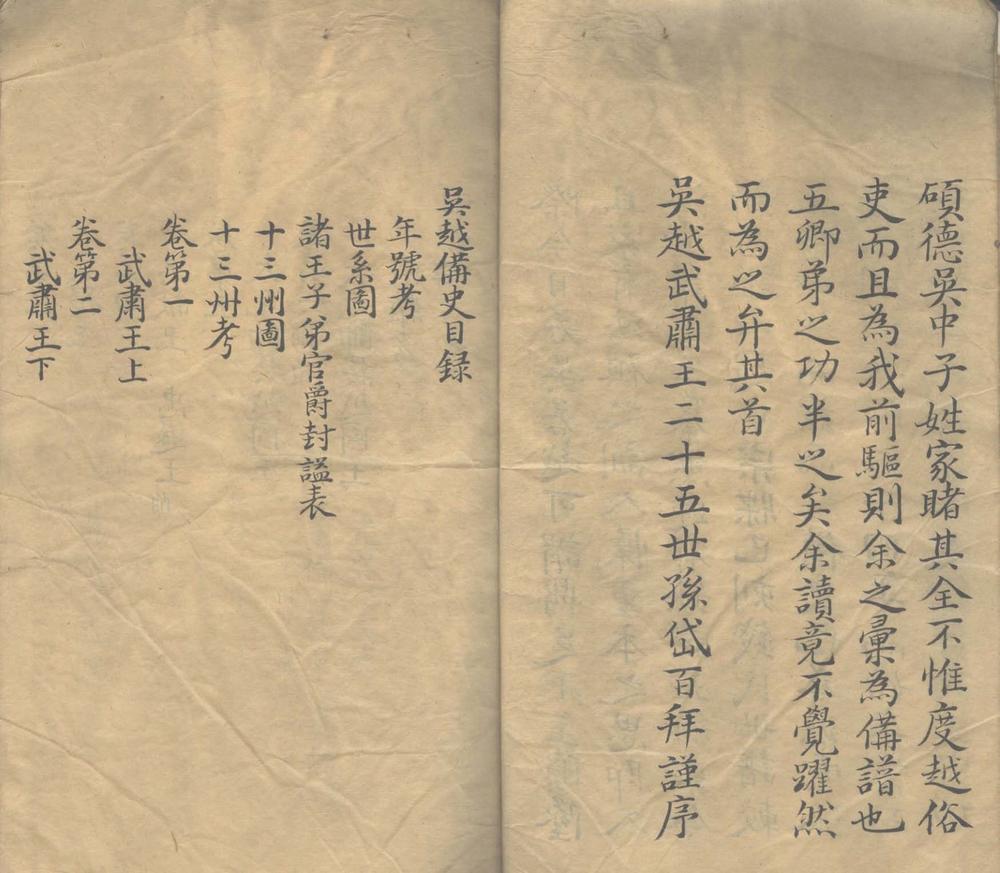 碩德吳中子姓家睹其全不惟度越俗
吏而且為我前驅則余之彙為備譜也
五卿弟之功半之矣余讀竟不覺躍然
而為之弁其首
吳越武肅王二十五世孫岱百拜謹序
吳越備史目録
年號考
世系圖
諸王子弟官爵封謚表
十三州圖
十三州考
卷第一
武肅王上
卷第二
武肅王下